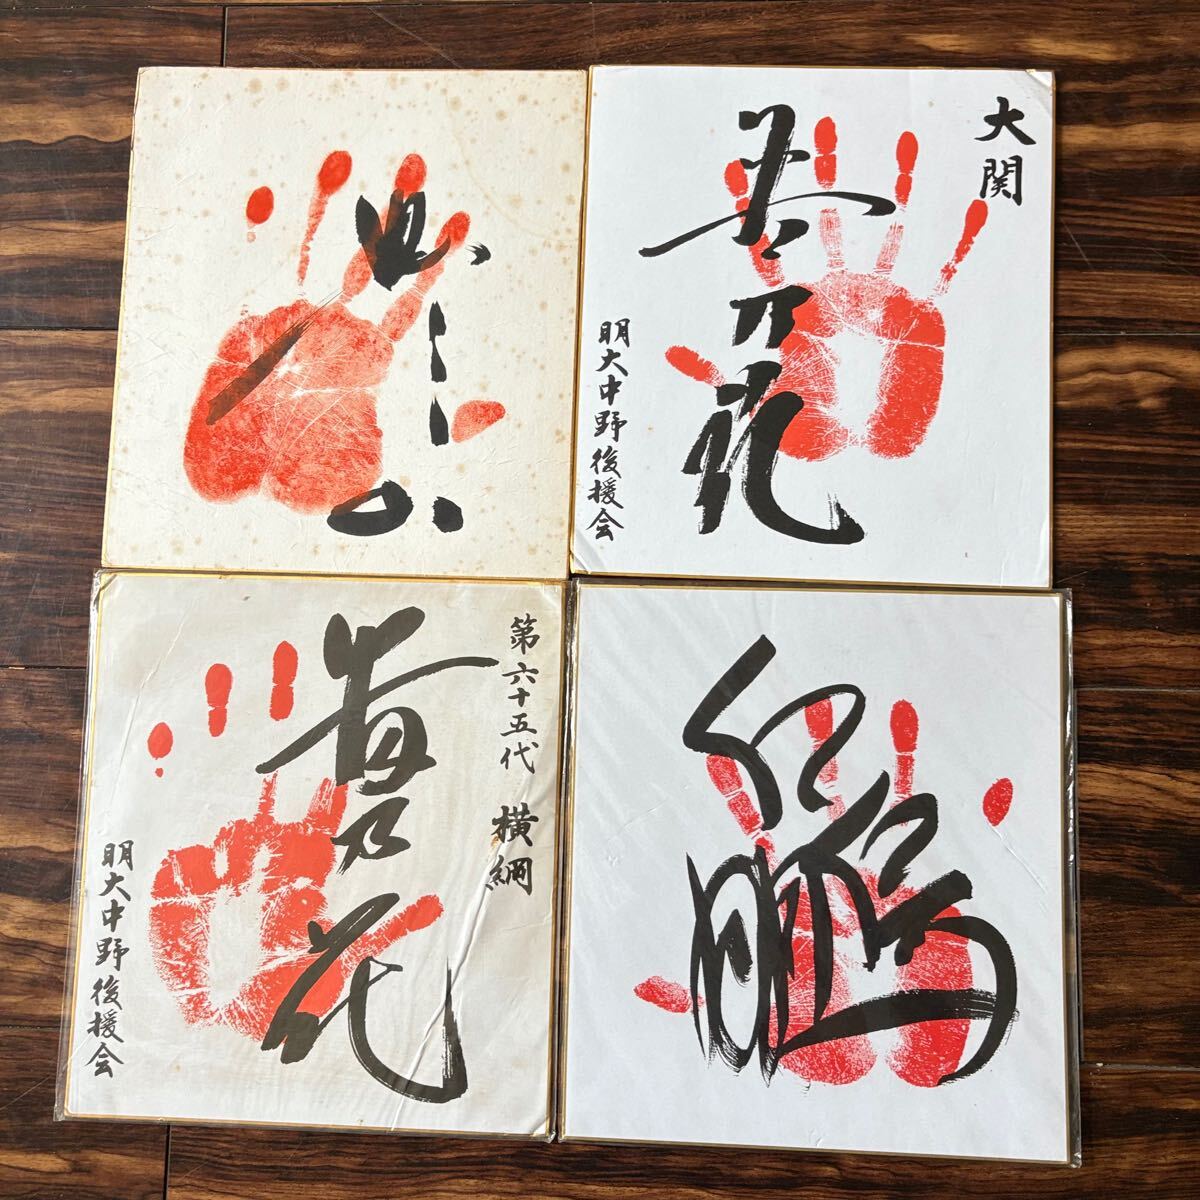 大関
若乃花
明大中野後援会
第六十五代 横綱
貴乃花
明大中野後援会
曙